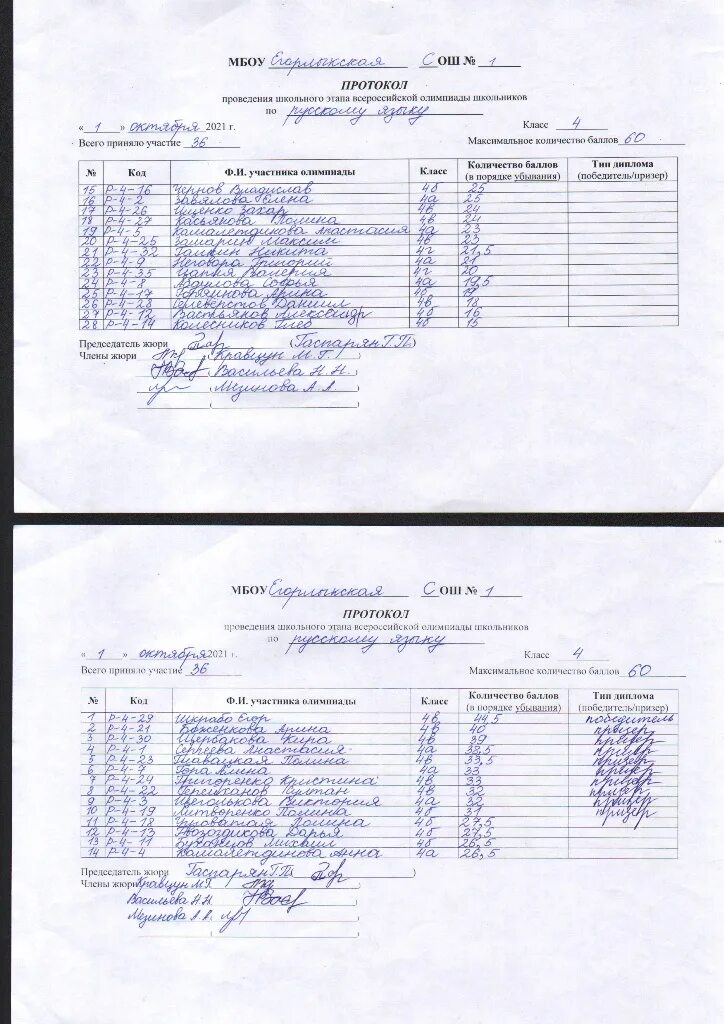 МБОУ Егорлыкская С ОШ № 1
ПРОТОКОЛ
проведения школьного этапа всероссийской олимпиады школьников
по русскому языку
« 1 » октября 2021 г. Класс 4
Всего приняло участие 36 Максимальное количество баллов 60
№ Код Ф.И. участника олимпиады Класс Количество баллов (в порядке убывания) Тип диплома (победитель/призер)
15 Р-4-16 Чернов Владислав 4б 25
16 Р-4-2 Завялова Елена 4а 25
17 Р-4-26 Ищенко Захар 4в 24
18 Р-4-27 Касьянова Полина 4в 24
19 Р-4-5 Камалетдикова Анастасия 4а 23
20 Р-4-25 Замарин Максим 4в 23
21 Р-4-32 Галкин Никита 4г 21,5
22 Р-4-9 Неговора Григорий 4а 21
23 Р-4-35 Цапня Валерия 4г 20
24 Р-4-8 Абдулова Софья 4а 19,5
25 Р-4-17 Арина 4б
26 Р-4-28 Селеверстов Даниил 4в 18
27 Р-4-12 Вастьянов Александр 4б 16
28 Р-4-14 Колесников Глеб 4б 15
Председатель жюри (Гаспарян Г.П.)
Члены жюри (Кравцун М.Г.)
Васильева Н.Н.
Мезинова А.А.
МБОУ Егорлыкская С ОШ № 1
ПРОТОКОЛ
проведения школьного этапа всероссийской олимпиады школьников
по русскому языку
« 1 » октября 2021 г. Класс 4
Всего приняло участие 36 Максимальное количество баллов 60
№ Код Ф.И. участника олимпиады Класс Количество баллов (в порядке убывания) Тип диплома (победитель/призер)
1 Р-4-29 Шкрабо Егор 4в 44,5 победитель
2 Р-4-21 Боженкова Арина 4в 40 призер
3 Р-4-30 Щербакова Кира 4в 39 призер
4 Р-4-1 Сергеева Анастасия 4а 38,5 призер
5 Р-4-23 Плавацкая Полина 4в 33,5 призер
6 Р-4-7 Гора Алина 4а 33 призер
7 Р-4-24 Григоренко Кристина 4в 33 призер
8 Р-4-22 Герейханов Султан 4в 32 призер
9 Р-4-3 Щеголькова Виктория 4а 32 призер
10 Р-4-19 Литворенко Полина 4б 31 призер
11 Р-4-18 Полина 4б 27,5
12 Р-4-13 Гвоздикова Дарья 4б 27,5
13 Р-4-11 Буханцов Михаил 4б 26,5
14 Р-4-4 Камалетдинова Анна 4а 26,5
Председатель жюри Гаспарян Г.П.
Члены жюри Кравцун М.Г.
Васильева Н.Н.
Мезинова А.А.